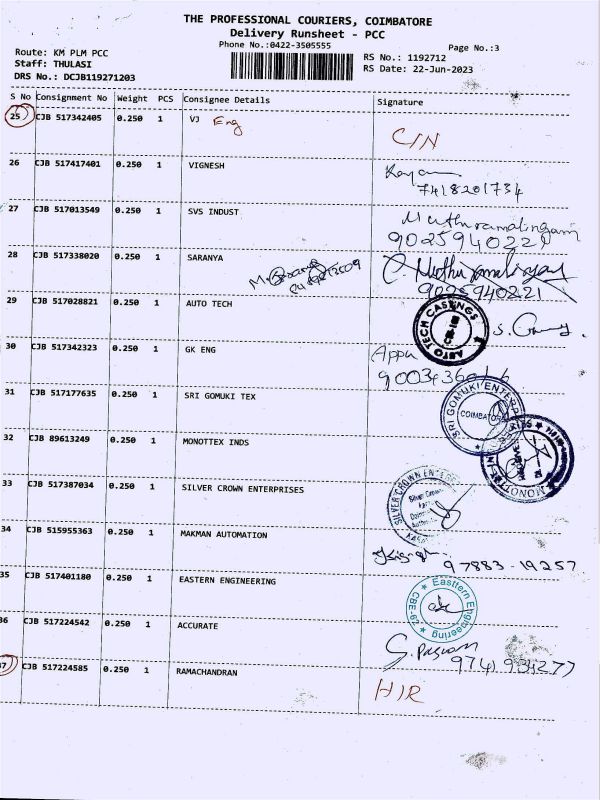 THE PROFESSIONAL COURIERS, COIMBATORE
Delivery Runsheet - PCC
Phone No.:0422-3505555
Page No.:3
Route: KM PLM PCC
RS No.: 1192712
Staff: THULASI
RS Date: 22-Jun-2023
DRS No.: DCJB119271203
S No Consignment No Weight PCS Consignee Details Signature
25 CJB 517342405 0.250 1 VJ Eng C/N
26 CJB 517417401 0.250 1 VIGNESH
7418201734
27 CJB 517013549 0.250 1 SVS INDUST Muthuramalingam
9025940221
28 CJB 517338020 0.250 1 SARANYA
9025940221
29 CJB 517028821 0.250 1 AUTO TECH AUTO TECH CASTINGS
30 CJB 517342323 0.250 1 GK ENG Appu
31 CJB 517177635 0.250 1 SRI GOMUKI TEX SRI GOMUKI ENTERPRISES COIMBATORE
32 CJB 89613249 0.250 1 MONOTTEX INDS
33 CJB 517387034 0.250 1 SILVER CROWN ENTERPRISES SILVER CROWN ENTE
Silver Crown
34 CJB 515955363 0.250 1 MAKMAN AUTOMATION
97883-19257
35 CJB 517401180 0.250 1 EASTERN ENGINEERING Eastern Engineering
36 CJB 517224542 0.250 1 ACCURATE
37 CJB 517224585 0.250 1 RAMACHANDRAN H/R